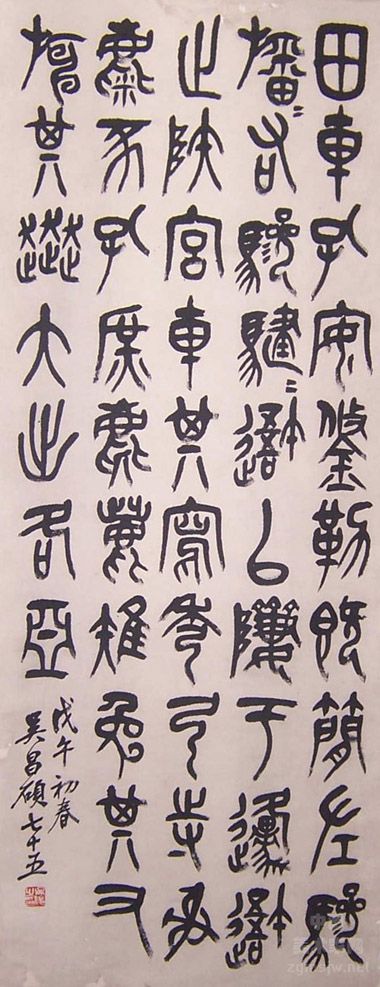 田車孔安鋚勒既簡左驂
旛=右驂騝=䢔以隮于邍䢔
止陝宮車其寫秀弓寺射
麋豕孔庶麀鹿雉兔其又
旃其奔大出各亞
戊午初春
吳昌碩七十五